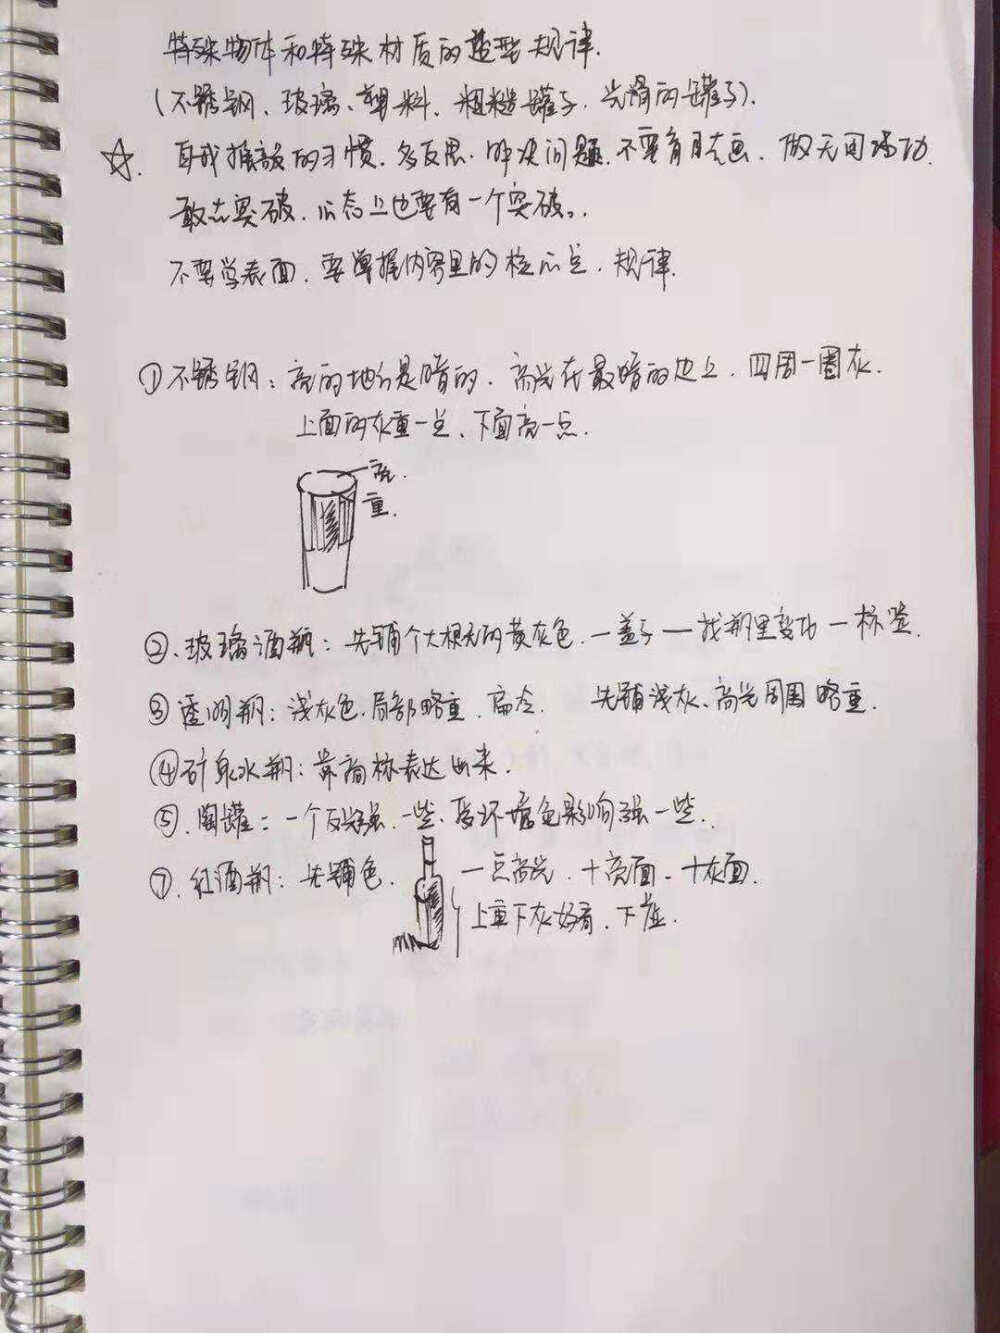 特殊物体和特殊材质的造型规律.
(不锈钢、玻璃、塑料、粗糙罐子、光滑的罐子).
☆. 自我推敲的习惯、多反思、解决问题、不要盲目去画、做无用功.
敢去突破、心态上也要有一个突破。.
不要学表面、要掌握内容里的核心点、规律.
①不锈钢: 亮的地方是暗的、高光在最暗的边上、四周一圈灰.
上面的灰重一点、下面亮一点.
亮.
重.
②、玻璃酒瓶: 先铺个大根无的黄灰色、一盖子一找那里变化一标签.
③透明瓶: 浅灰色、局部略重、扁冷. 先铺浅灰、高光周围略重.
④矿泉水瓶: 靠商标表达出来.
⑤、陶罐: 一个反光强一些、受环境色影响强一些.
⑦、红酒瓶: 先铺色. 一点高光、十亮面、十灰面.
上重下灰好看、下